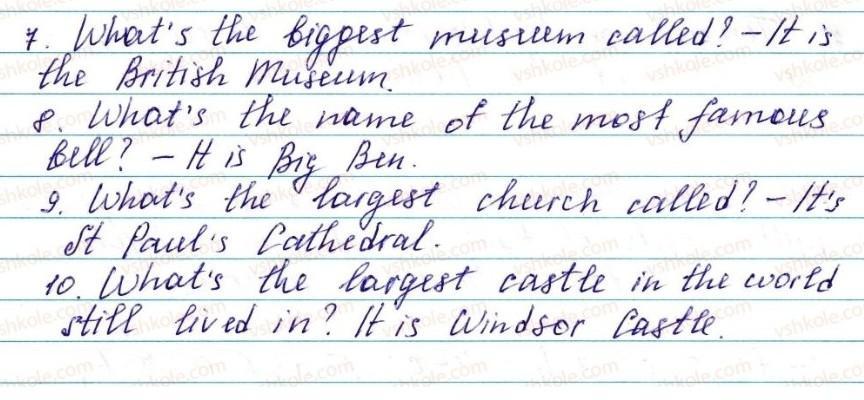 7. What's the biggest museum called? - It is
the British Museum.
8. What's the name of the most famous
bell? - It is Big Ben.
9. What's the largest church called? - It's
St Paul's Cathedral.
10. What's the largest castle in the world
still lived in? It is Windsor Castle.